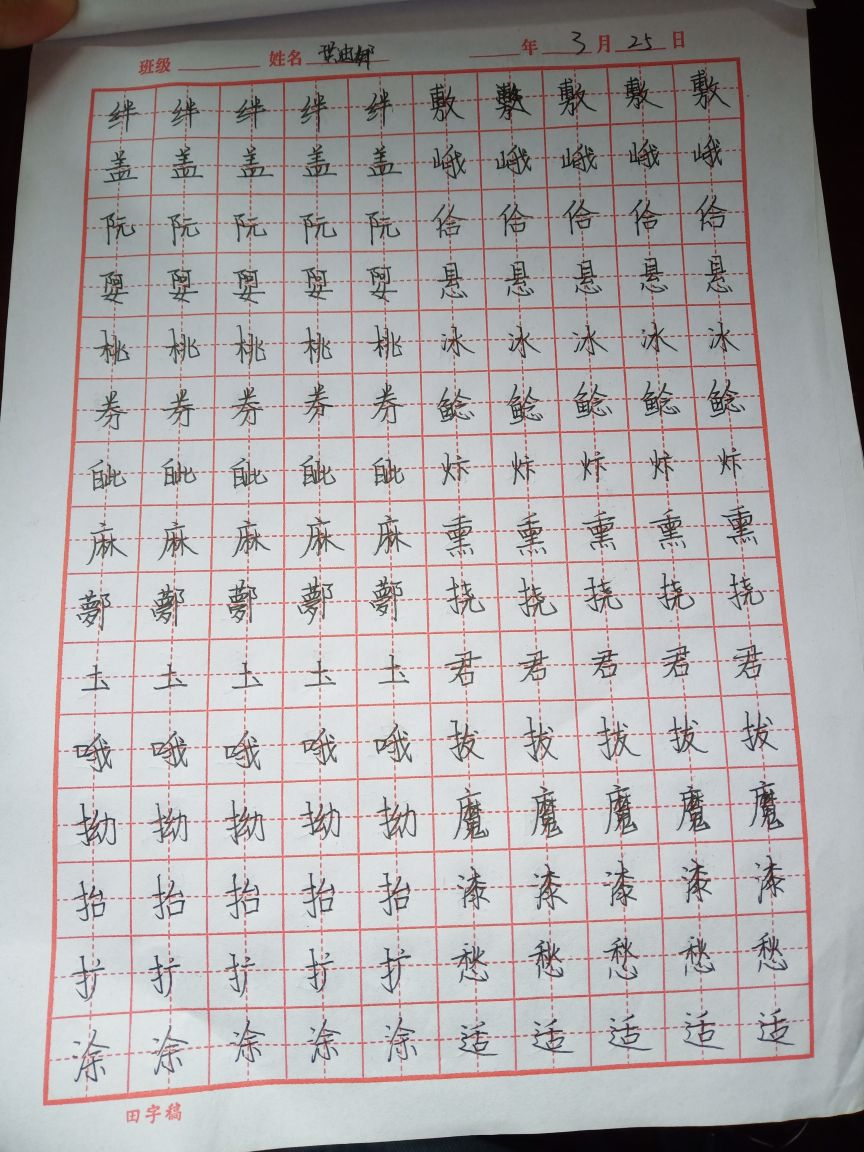 班级 姓名 年 3 月 25 日
绊 绊 绊 绊 绊 敷 敷 敷 敷 敷
盖 盖 盖 盖 盖 峨 峨 峨 峨 峨
阮 阮 阮 阮 阮 佮 佮 佮 佮 佮
娿 娿 娿 娿 娿 悬 悬 悬 悬 悬
桃 桃 桃 桃 桃 冰 冰 冰 冰 冰
券 券 券 券 券 鲶 鲶 鲶 鲶 鲶
麻 麻 麻 麻 麻 熏 熏 熏 熏 熏
鄸 鄸 鄸 鄸 鄸 挠 挠 挠 挠 挠
土 土 土 土 土 君 君 君 君 君
哦 哦 哦 哦 哦 拔 拔 拔 拔 拔
拗 拗 拗 拗 拗 魔 魔 魔 魔 魔
抬 抬 抬 抬 抬 漆 漆 漆 漆 漆
扩 扩 扩 扩 扩 愁 愁 愁 愁 愁
涂 涂 涂 涂 涂 适 适 适 适 适
田字稿